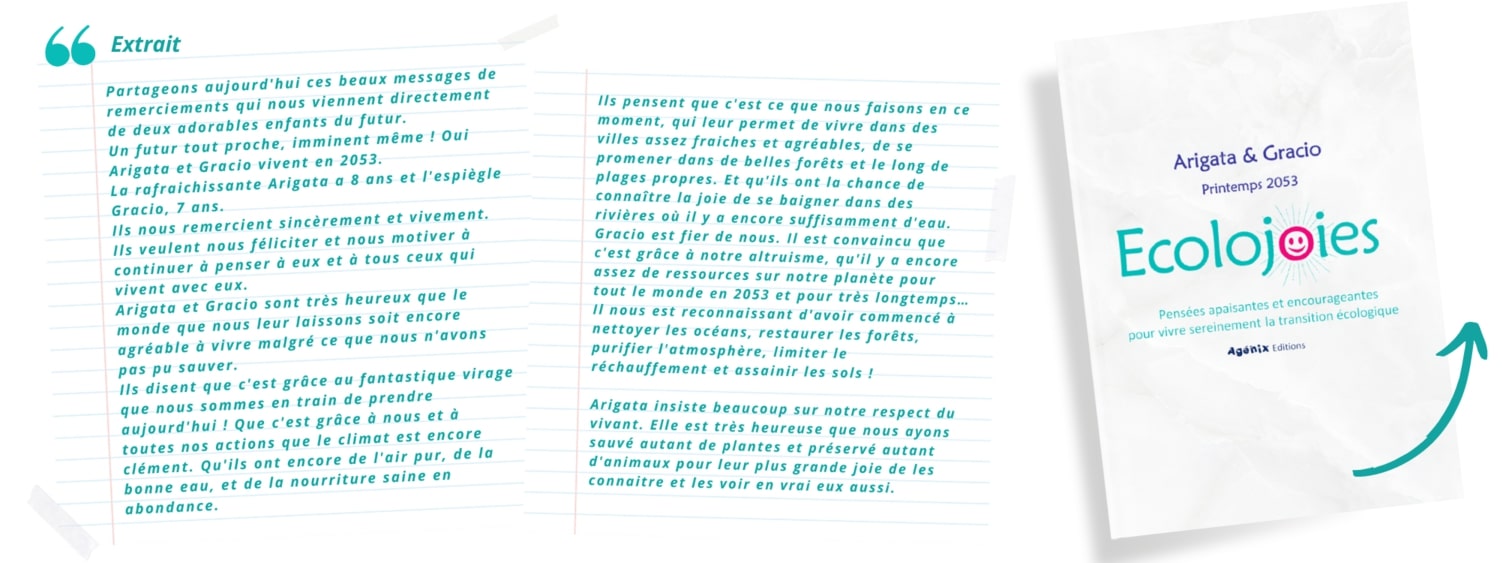 Extrait
Partageons aujourd'hui ces beaux messages de
remerciements qui nous viennent directement
de deux adorables enfants du futur.
Un futur tout proche, imminent même ! Oui
Arigata et Gracio vivent en 2053.
La rafraichissante Arigata a 8 ans et l'espiègle
Gracio, 7 ans.
Ils nous remercient sincèrement et vivement.
Ils veulent nous féliciter et nous motiver à
continuer à penser à eux et à tous ceux qui
vivent avec eux.
Arigata et Gracio sont très heureux que le
monde que nous leur laissons soit encore
agréable à vivre malgré ce que nous n'avons
pas pu sauver.
Ils disent que c'est grâce au fantastique virage
que nous sommes en train de prendre
aujourd'hui ! Que c'est grâce à nous et à
toutes nos actions que le climat est encore
clément. Qu'ils ont encore de l'air pur, de la
bonne eau, et de la nourriture saine en
abondance.
Ils pensent que c'est ce que nous faisons en ce
moment, qui leur permet de vivre dans des
villes assez fraiches et agréables, de se
promener dans de belles forêts et le long de
plages propres. Et qu'ils ont la chance de
connaître la joie de se baigner dans des
rivières où il y a encore suffisamment d'eau.
Gracio est fier de nous. Il est convaincu que
c'est grâce à notre altruisme, qu'il y a encore
assez de ressources sur notre planète pour
tout le monde en 2053 et pour très longtemps…
Il nous est reconnaissant d'avoir commencé à
nettoyer les océans, restaurer les forêts,
purifier l'atmosphère, limiter le
réchauffement et assainir les sols !
Arigata insiste beaucoup sur notre respect du
vivant. Elle est très heureuse que nous ayons
sauvé autant de plantes et préservé autant
d'animaux pour leur plus grande joie de les
connaitre et les voir en vrai eux aussi.
Arigata & Gracio
Printemps 2053
Ecolojoies
Pensées apaisantes et encourageantes
pour vivre sereinement la transition écologique
Agénix Editions